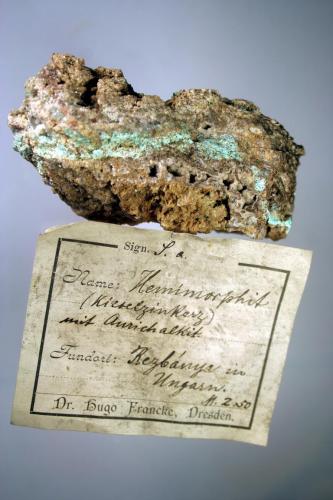 Sign. S. a.
Name: Hemimorphit
(Kieselzinkerz)
mit Aurichalkit
Fundort: Rezbánya in
Ungarn.
M. 2.50
Dr. Hugo Francke, Dresden.